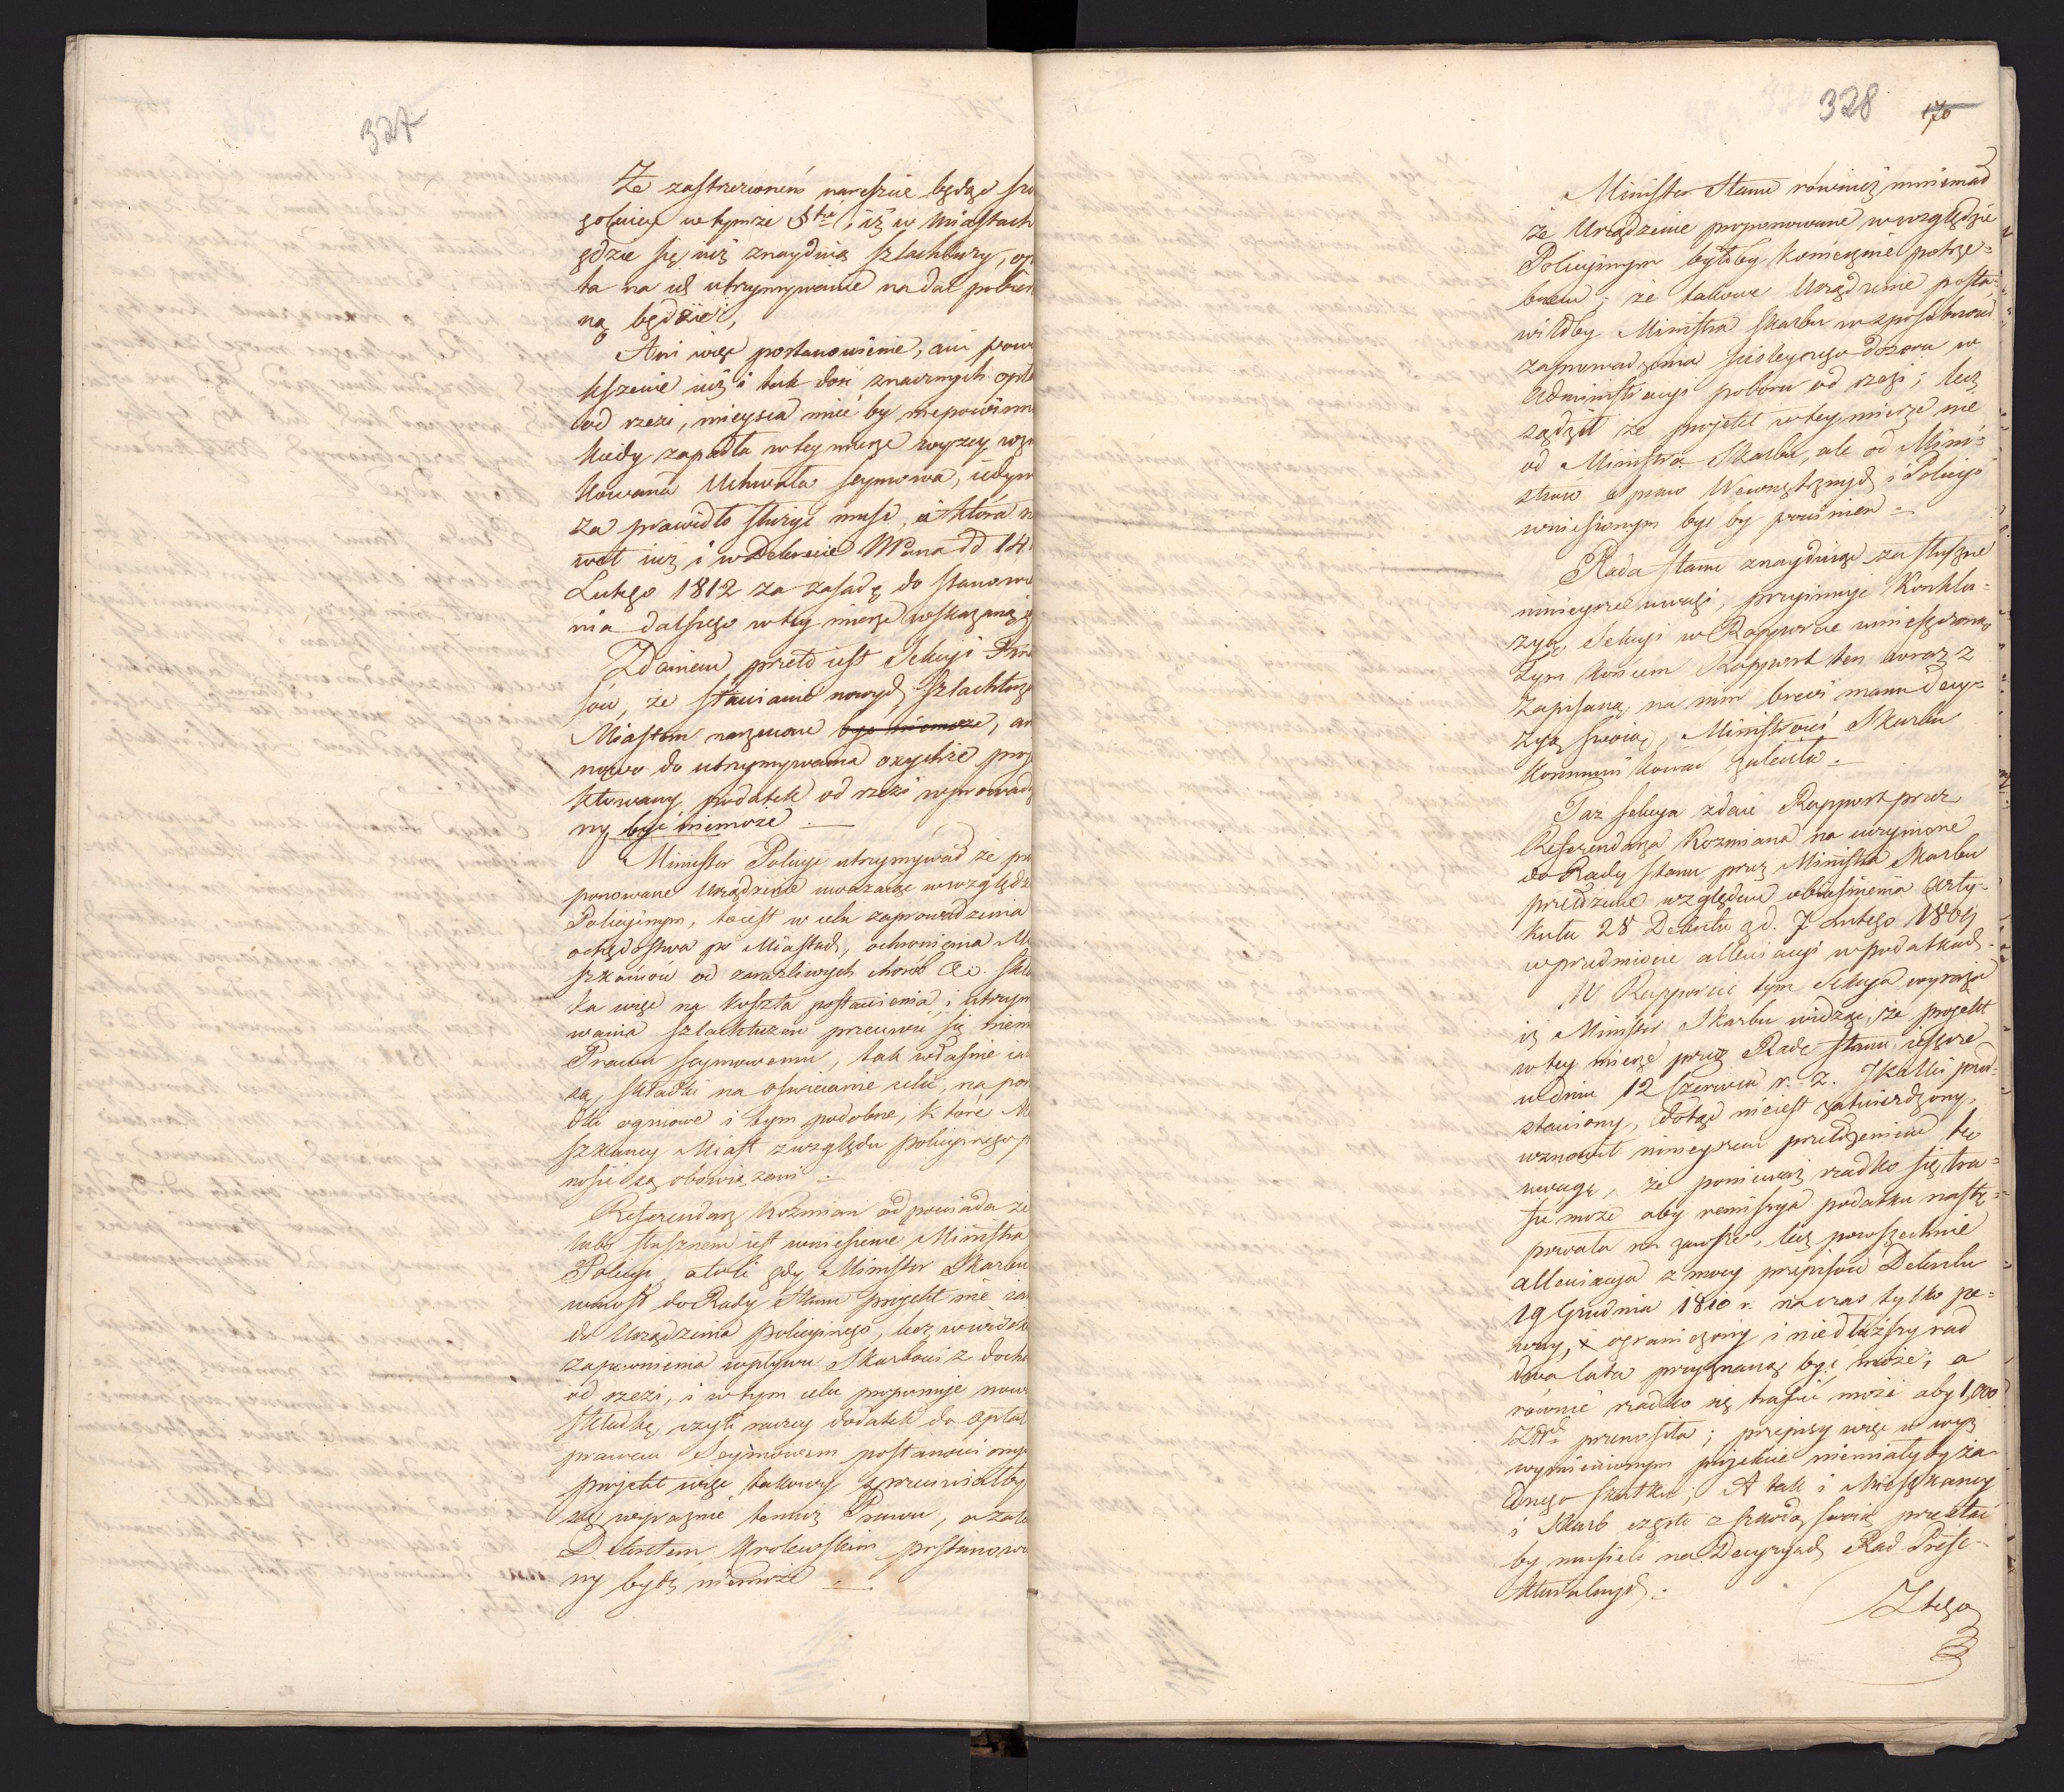 327
Że zastrzeżeniem nareszcie będąc szcze
gólnieg w tymże §fie, iż w Miastach
gdzie się iuż znayduią szlachtuzy, op
ta na ich utrzymywanie nadal pobiera
ną będzie,
Ani więc postanowienie, ani powi
kszenie iuż i tak dość znacznych opła
od rzezi, mieysca mieć by niepowinno
kiedy zapadła w tey mierze wyżey wzm
kowana Uchwała Seymowa, iedyn
za prawidło służyć musi, a która n
wet iuż i w Dekrecie Wana dd 14
Lutego 1812 za zasadę do stanowie
nia dalszego w tey mierze wskazaną
Zdaniem przeto iest Sekcyi Fina
sów, że stawianie nowych szlachtuz
Miastom narzucone być niemoże, an
nowo do utrzymywania onychże proj
ktowany podatek od rzezi wprowadzo
ny być niemoże .
Minister Policyi utrzymywał że pro
ponowane Urządzenie uważaiąc w względzie
Policyinym, to iest w celu zaprowadzenia
ochędostwa po Miastach, ochronienia Mie
szkańców od zaraźliwych chorób &c. skła
ka więc na koszta postawienia i utrzym
wania szlachtuzów przeciwić się niem
Prawu Seymowemu, tak właśnie iak
są składki na oświecanie ulic, na po
dki ogniowe i tym podobne, które Mie
szkańcy Miast z względu policyinego po
nosić są obowiązani .
Referendarz Koźmian odpowiada że
lubo słusznem iest wniesienie Ministra
Policyi, atoli gdy Minister Skarbu
wniosł do Rady Stanu projekt nie ia
do Urządzenia policyinego, lecz w widoku
zapewnienia wpływu Skarbowi z docho
od rzezi, i w tym celu proponuje nową
składkę, czyli raczey dodatek do opłat
prawem Seymowem postanowiony
projekt więc takowy sprzeciwiałby
się wyraźnie temuż Prawu, a zate
Dekretem Krolewskim postanowio
ny bydź niemoże .
328
170
Minister Stanu również mniemał
że Urządzenie proponowane w względzie
Policyinym byłoby koniecznie potrze-
bnem; że takowe Urządzenie posta-
wiłoby Ministra Skarbu w sposobności
zaprowadzenia ściśleyszego dozoru w
Administracyi poboru od rzezi; lecz
sądził że projekt w tey mierze nie
od Ministra Skarbu, ale od Mini-
strów spraw Wewnętrznych i Policyi
wniesionym być by powinien .
Rada Stanu znayduiąc za słuszne
ninieysze uwagi, przyimuje Konklu-
zyą Sekcyi w Rapporcie umieszczoną
Tym końcem Rapport ten wraz z
zapisaną na nim brevi manu decy-
zyą swoią, Ministrowi Skarbu
kommunikować zaleciła .
Taż Sekcya zdaie Rapport przez
Referendarza Kozmiana na uczynione
do Rady Stanu przez Ministra Skarbu
przełożenie względem obiaśnienia Arty-
kułu 28 Dekretu z d. 7 Lutego 1809
w przedmiocie allewiacyi w podatkach .
W Rapporcie tym Sekcya wyraża
iż Minister Skarbu widząc, że projekt
w tey mierze przez Radę Stanu ieszcze
w dniu 12 Czerwca r. z. JKMci przed-
stawiony, dotąd nieiest zatwierdzony,
wznowił ninieyszem przełożeniem tę
uwagę, że ponieważ rzadko się tra-
fić może aby remissya podatku nastę-
powała na zawsze, lecz powszechnie
allewiacya z mocy przepisów Dekretu
19 Grudnia 1810 r. na czas tylko pe-
wny, ograniczony i niedłuższy nad
dwa lata przyznaną być może; a
równie rzadko się trafić może aby 1,000
Złtch przenosiła; przepisy więc w wyż
wymienionym projekcie niemiałyby ża-
dnego skutku; A tak i Mieszkańcy
i Skarb często z szkodą swoią przestać
by musieli na Decyzyach Rad Prefe-
kturalnych .
Z tego